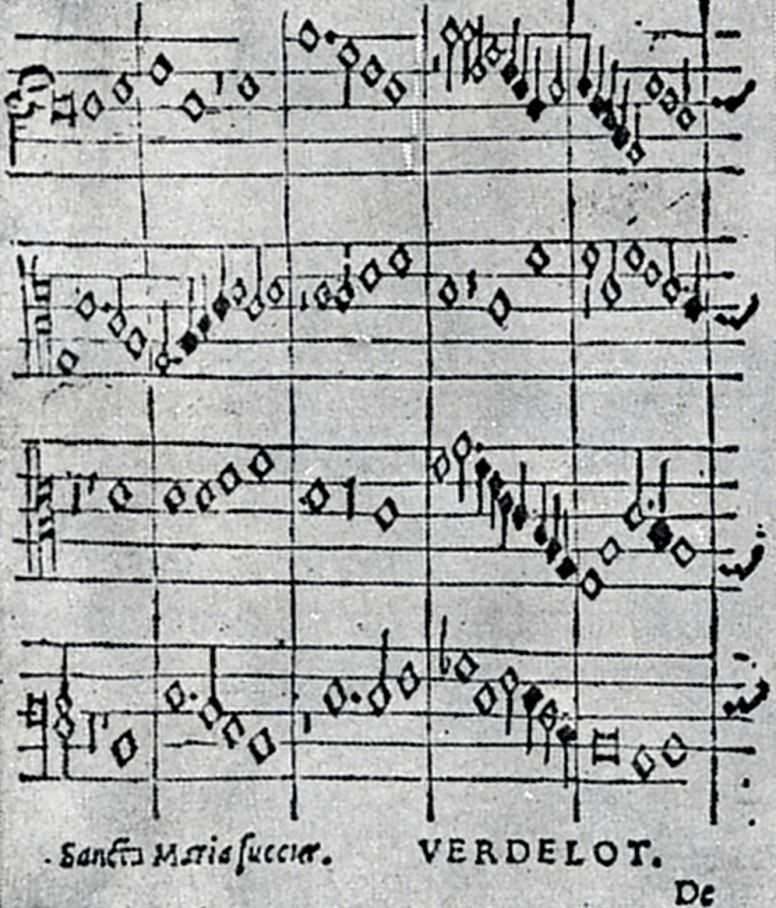 Sancta Maria succur. VERDELOT.
De